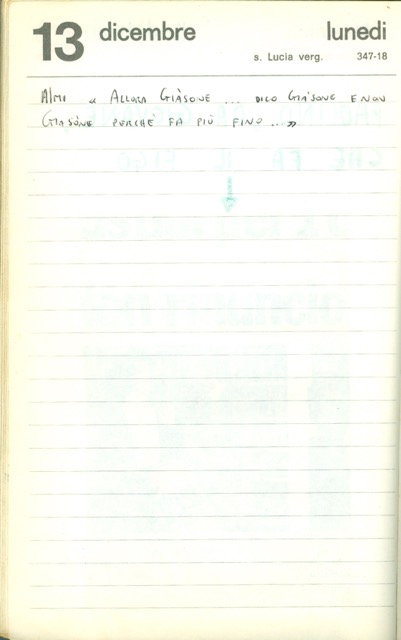 13 dicembre lunedì
s. Lucia verg. 347-18
Almi « Allora Giàsone ... dico Giàsone e non
Giasòne perché fa più fino ... »